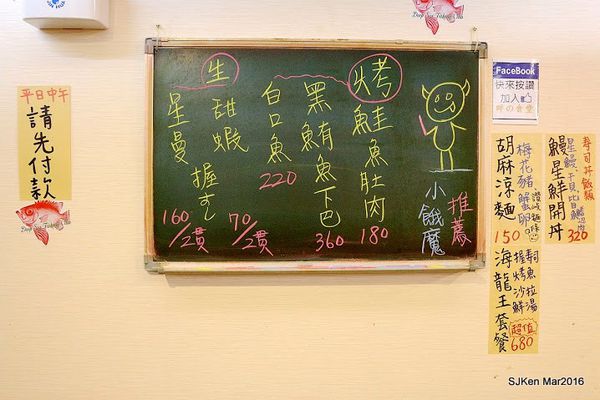 平日中午
請先付款
推薦
小餓魔
烤
鮭魚肚肉
180
黑鮪魚下巴
360
白口魚
220
生
甜蝦
握すし
70/2貫
星鰻
160/2貫
FaceBook
快來按讚
加入
壽司丼飯類
鰻星鮮開丼
320
梅花豬、蟹卵
胡麻涼麵
150
握壽司
烤魚
沙拉
鮮湯
海龍王套餐
超值
680
SJKen Mar2016